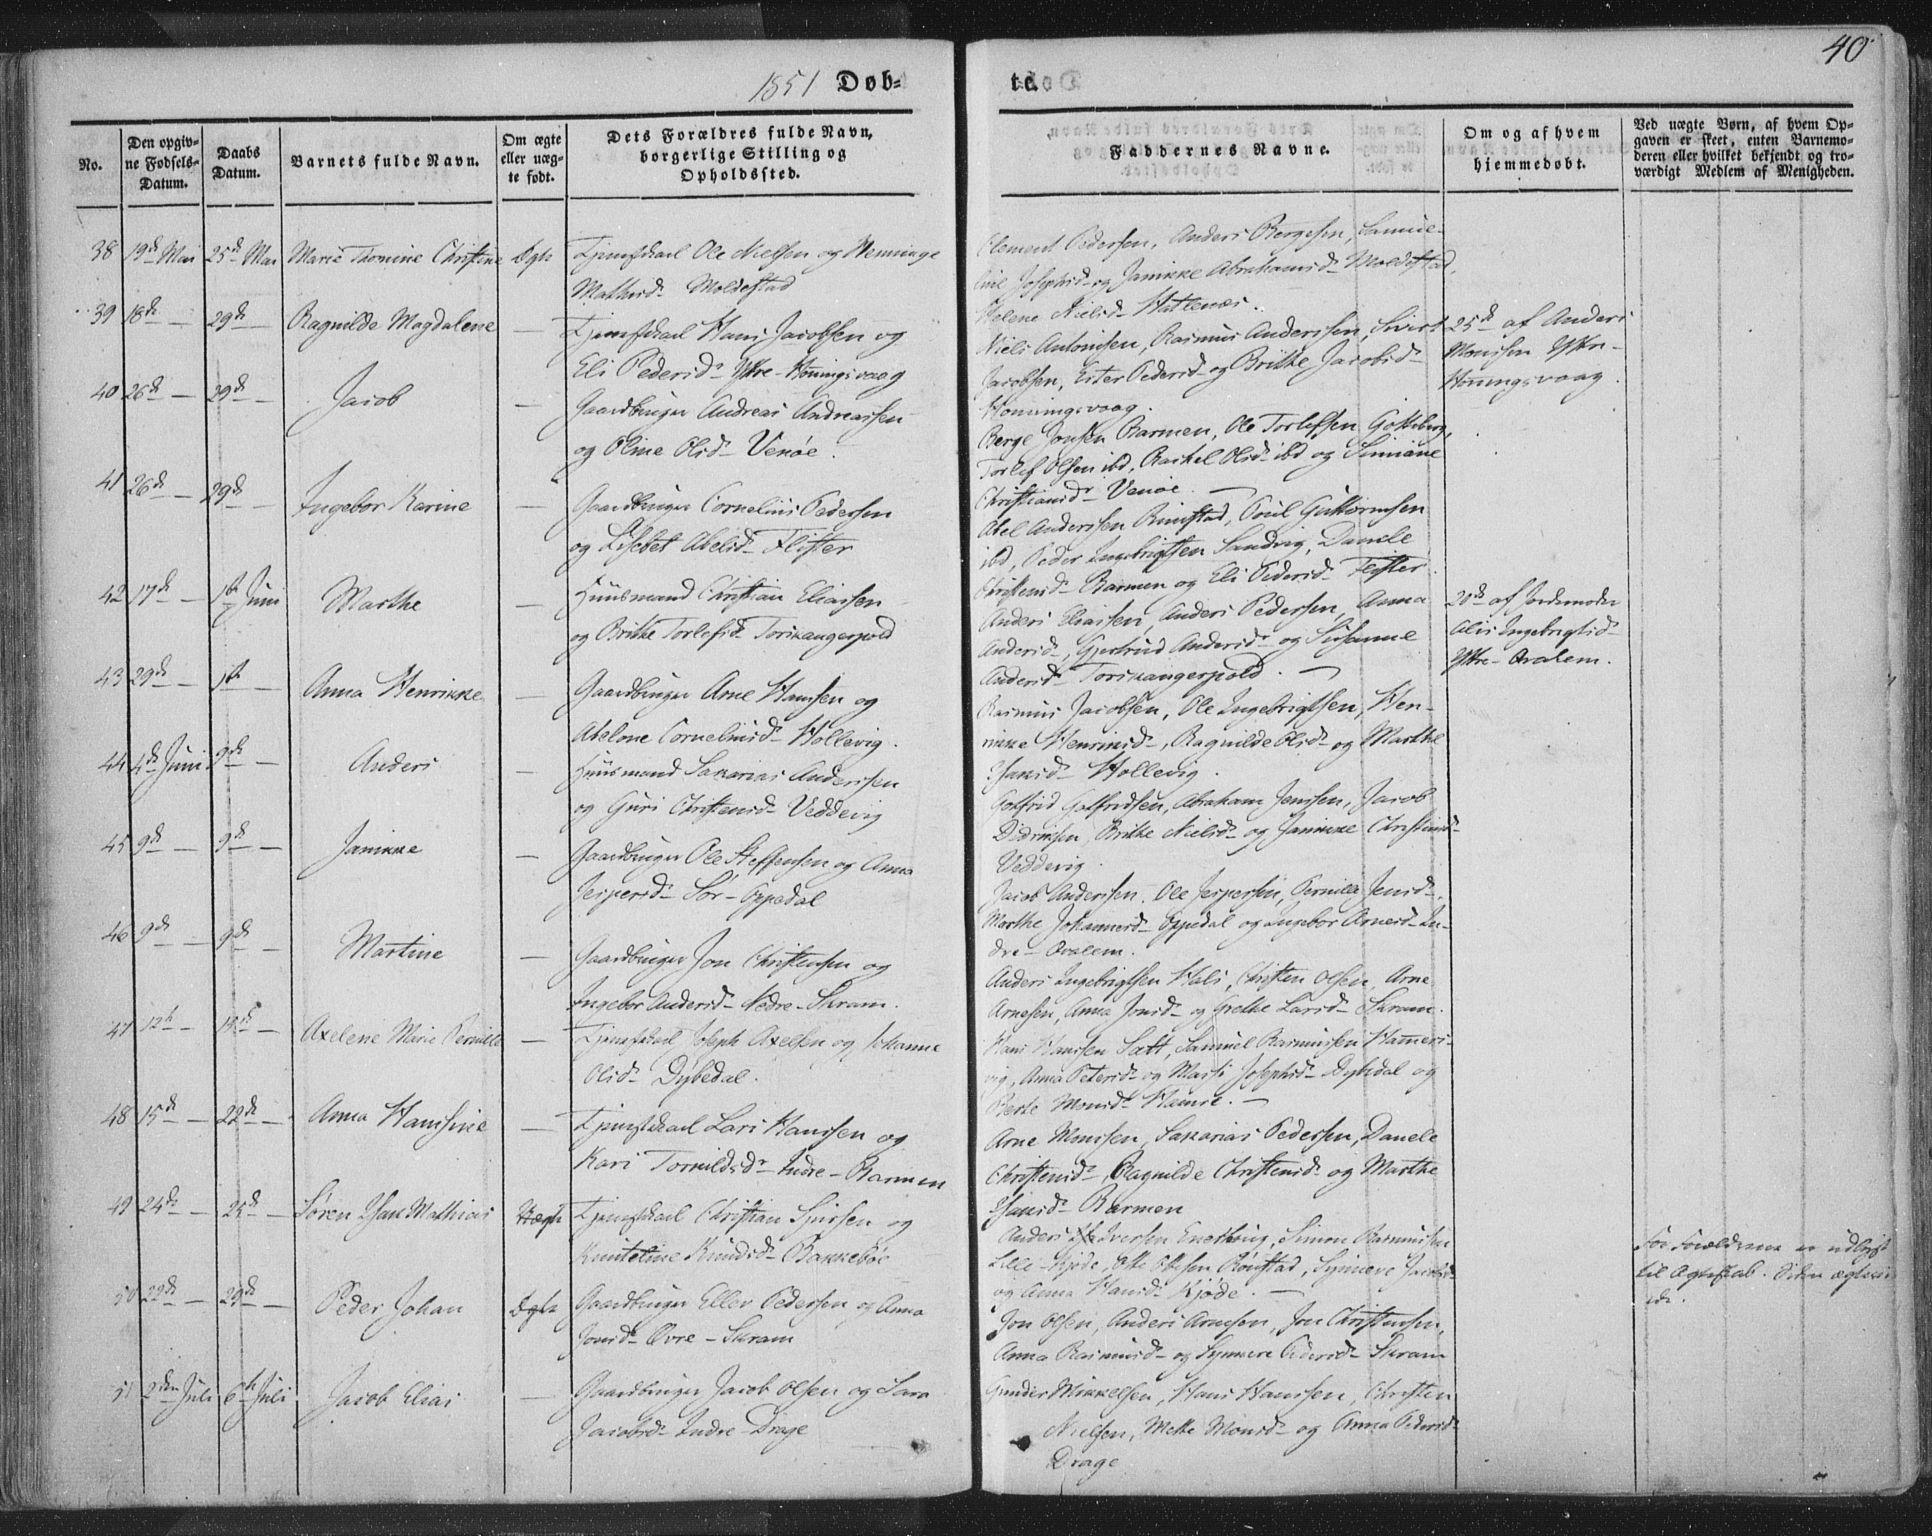 1851 Døb-
te.
40
No.
Den opgiv-
ne Fødsels-
Datum.
Daabs
Datum.
Barnets fulde Navn.
Om ægte
eller uæg-
te født.
Dets Forældres fulde Navn,
borgerlige Stilling og
Opholdssted.
Faddernes Navne.
Om og af hvem
hjemmedøbt.
Ved uægte Børn, af hvem Op-
gaven er skeet, enten Barnemo-
deren eller hvilket bekjendt og tro-
værdigt Medlem af Menigheden.
38 19de Mai 25de Mai Marie Thomine Christine Ægte Tjenestekarl Ole Nielsen og Henninge
Mathisd. Moldestad
Clement Pedersen, Anders Børgesen, Samue-
line Josephsd. og Janikke Abrahamsd. Moldestad,
Helene Nielsd. Hattenæs.
39 18de — 29de — Ragnilde Magdalene — Tjenestekarl Hans Jacobsen og
Eli Pedersd. Ytre-Honingsvaag
Niels Antonisen, Rasmus Anderssen, Sivert
Jacobsen, Ester Pedersd. og Brithe Jacobsd.
Honningsvaag.
25de af Anders
Monssen Ytre-
Honingsvaag.
40 26de — 29de — Jacob — Gaardbruger Andreas Andreassen
og Oline Olsd. Venøe.
Berge Jonsen Barmen, Ole Torlefsen Gotteberg,
Torlef Olsen ibd, Rachel Olsd. ibd og Simiane
Christiansdr Venøe. —
41 26de — 29de — Ingebor Karine — Gaardbruger Cornelius Pedersen
og Lisebet Abelsd. Flister
Abel Anderssen Rimstad, Poul Guttormsen
ibd, Peder Ingebrigtsen Sandvig, Danele
Christensd. Barmen og Eli Pedersd. Flister.
42 17de — 1ste Juni Marthe — Huusmand Christian Eliassen
og Brithe Torlefsd. Torskangerpold
Anders Eliassen, Anders Pedersen, Anna
Andersd., Gjertrud Andersd. og Susanne
Andersd. Torskangerpold. —
20de af Jordemoder
Alis Ingebrigtsd.
Ytre-Aralem.
43 29de — 1ste — Anna Henrikke — Gaardbruger Arne Hanssen og
Abelone Corneliusd. Hollevig.
Rasmus Jacobsen, Ole Ingebrigtsen, Hen-
rikke Henriksd., Ragnilde Olsd. og Marthe
Hansd. Hollevig.
44 4de Juni 9de — Anders — Huusmand Sakarias Anderssen
og Guri Christensd. Veddevig
Gotfrid Gotfridsen, Abraham Jenssen, Jacob
Didriksen, Brithe Nielsd. og Janikke Christensd.
Veddevig.
45 9de — 9de — Janikke — Gaardbruger Ole Steffensen og Anna
Jespersd. Sør-Oppedal
Jacob Anderssen, Ole Jespersen, Pernile Jensd.,
Marthe Johannesd. Oppedal og Ingebor Arnesd. In-
dre-Aralem.
46 9de — 9de — Martine — Gaardbruger Jon Christensen og
Ingebor Andersd. Nedre-Skram.
Anders Ingebrigtsen Hals, Christen Olsen, Arne
Arnesen, Anna Jonsd. og Grethe Larsd. Skram.
47 12te — 15de — Axelene Marie Pernille — Tjenestekarl Joseph Axelsen og Johanne
Olsd. Dybedal.
Hans Hanssen Satt, Samuel Rasmussen Hammers-
vig, Anna Petersd. og Marti Josephsd. Dybedal og
Berte Monsd. Hamre. —
48 15de — 22de — Anna Hansine — Tjenestekarl Lars Hanssen og
Kari Tomildsdr Indre-Barmen
Arne Monssen, Sakarias Pedersen, Danele
Christensd., Ragnilde Christensd. og Marthe
Hansd. Barmen
49 24de — 25de — Søren Isak Mathias Uægte Tjenestekarl Christian Sjursen og
Knuteline Knudsd. Bakkebøe
Anders Iversen Eneskoug, Simon Rasmussen
Lille-Kjøde, Otte Ottesen Rønstad, Synneve Jacobsd.
og Anna Hansd. Kjøde. —
For Forældrene er udlyst
til Ægteskab. Siden ægtevi-
ede.
50 22de — 29de — Peder Johan Ægte Gaardbruger Eller Pedersen og Anna
Jonsd. Øvre-Skram
Jon Olsen, Anders Arnesen, Jon Christensen,
Anna Rasmusd. og Synneve Pedersd. Skram
51 2den Juli 6te Juli Jacob Elias — Gaardbruger Jacob Olsen og Sara
Jacobsd. Indre-Drage
Gunder Mikkelsen, Hans Hanssen, Christen
Nielsen, Mette Monsd. og Anna Pedersd.
Drage